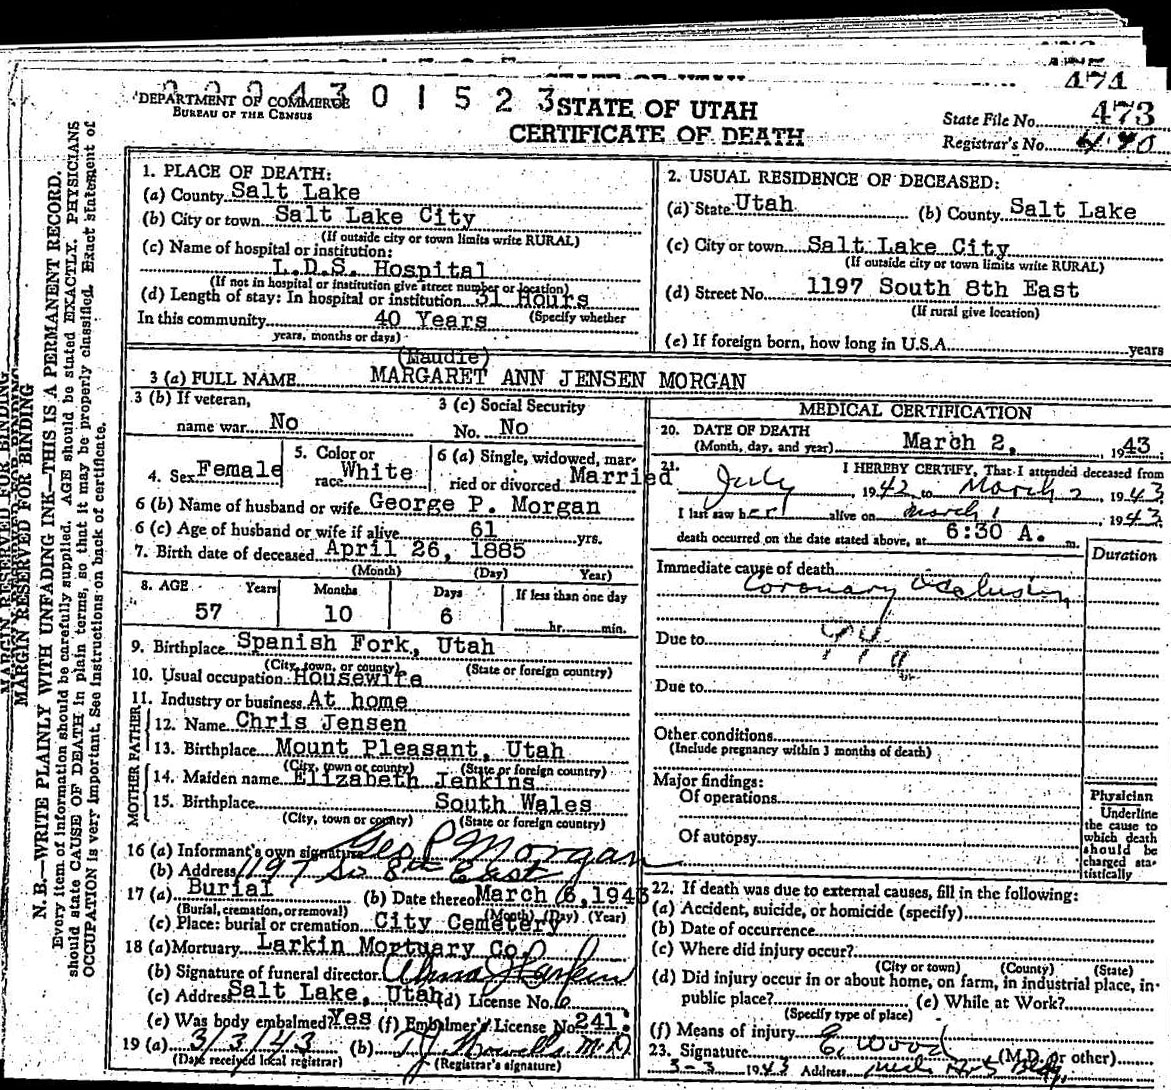 474
0 0 0 4 3 0 1 5 2 3
DEPARTMENT OF COMMERCE
BUREAU OF THE CENSUS
STATE OF UTAH
CERTIFICATE OF DEATH
State File No. 473
Registrar's No. 490
MARGIN RESERVED FOR BINDING
N. B.—WRITE PLAINLY WITH UNFADING INK—THIS IS A PERMANENT RECORD.
Every item of information should be carefully supplied. AGE should be stated EXACTLY. PHYSICIANS
should state CAUSE OF DEATH in plain terms, so that it may be properly classified. Exact statement of
OCCUPATION is very important. See instructions on back of certificate.
1. PLACE OF DEATH:
(a) County Salt Lake
(b) City or town Salt Lake City
(If outside city or town limits write RURAL)
(c) Name of hospital or institution:
L.D.S. Hospital
(If not in hospital or institution give street number or location)
(d) Length of stay: In hospital or institution 31 Hours
In this community 40 Years (Specify whether
years, months or days)
2. USUAL RESIDENCE OF DECEASED:
(a) State Utah (b) County Salt Lake
(c) City or town Salt Lake City
(If outside city or town limits write RURAL)
(d) Street No. 1197 South 8th East
(If rural give location)
(e) If foreign born, how long in U.S.A. years
(Maudie)
3 (a) FULL NAME MARGARET ANN JENSEN MORGAN
3 (b) If veteran, 3 (c) Social Security
name war No No. No
4. Sex Female 5. Color or race White 6 (a) Single, widowed, married or divorced Married
6 (b) Name of husband or wife George P. Morgan
6 (c) Age of husband or wife if alive 61 yrs.
7. Birth date of deceased April 26, 1885
(Month) (Day) Year)
8. AGE Years Months Days If less than one day
57 10 6 hr. min.
9. Birthplace Spanish Fork, Utah
(City, town, or county) (State or foreign country)
10. Usual occupation Housewife
11. Industry or business At home
FATHER
12. Name Chris Jensen
13. Birthplace Mount Pleasant, Utah
(City, town or county) (State or foreign country)
MOTHER
14. Maiden name Elizabeth Jenkins
15. Birthplace South Wales
(City, town or county) (State or foreign country)
16 (a) Informant's own signature Geo P Morgan
(b) Address 1197 So 8th East
17 (a) Burial (b) Date thereof March 6, 1943
(Burial, cremation, or removal) (Month) (Day) (Year)
(c) Place: burial or cremation City Cemetery
18 (a) Mortuary Larkin Mortuary Co.
(b) Signature of funeral director Larkin
(c) Address Salt Lake, Utah (d) License No. 6
(e) Was body embalmed? Yes (f) Embalmer's License No. 241.
19 (a) 3/3/43 (b) M.D.
(Date received local registrar) (Registrar's signature)
MEDICAL CERTIFICATION
20. DATE OF DEATH
(Month, day, and year) March 2, 1943
21. I HEREBY CERTIFY, That I attended deceased from
July, 1942 to March 2, 1943
I last saw her alive on March 1, 1943
death occurred on the date stated above, at 6:30 A. m.
Duration
Immediate cause of death
Coronary Occlusion
Due to 94a
Due to
Other conditions
(Include pregnancy within 3 months of death)
Major findings:
Of operations
Of autopsy
Physician
Underline
the cause to
which death
should be
charged sta-
tistically
22. If death was due to external causes, fill in the following:
(a) Accident, suicide, or homicide (specify)
(b) Date of occurrence
(c) Where did injury occur?
(City or town) (County) (State)
(d) Did injury occur in or about home, on farm, in industrial place, in-
public place? (e) While at Work?
(Specify type of place)
(f) Means of injury
23. Signature Wood (M.D. or other)
3-3 1943 Address Bldg.